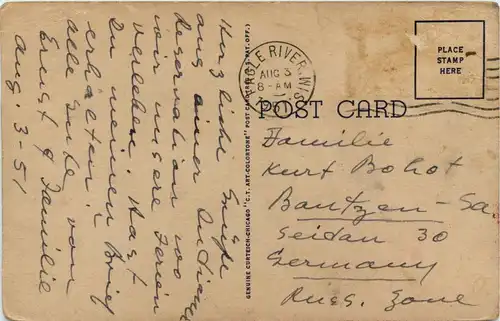 Herzliche Grüße
aus einer Indianer
Reservation wo
wir unsere Ferien
verleben. Hast
Du meinen Brief
erhalten?
alle Gute von
Ernst & Familie
aug 3-51
GENUINE CURTEICH-CHICAGO "C.T. ART-COLORTONE" POST CARD (REG. U.S. PAT. OFF.)
EAGLE RIVER, WIS.
AUG 3
8-AM
POST CARD
PLACE
STAMP
HERE
Familie
Kurt Bohot
Bautzen-Sa.
Seidau 30
Germany
Russ. Zone